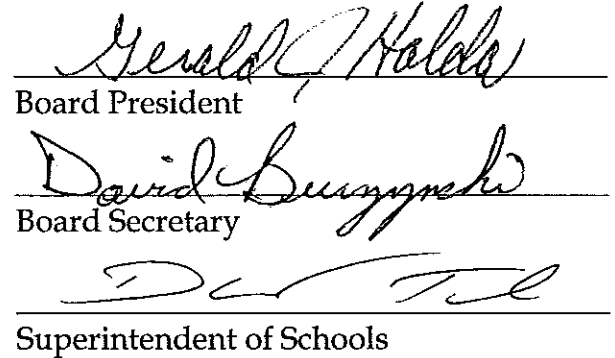 Gerald J Halda
Board President
David Burzynski
Board Secretary
Superintendent of Schools